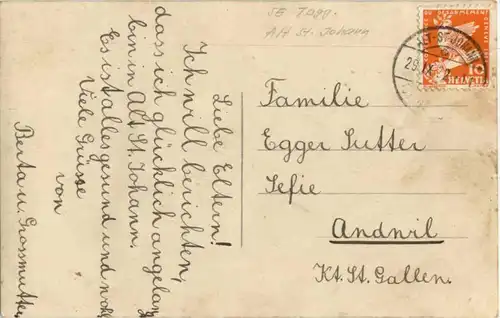 JB Zugg.
Alt St. Johann
Liebe Eltern!
Ich will berichten,
dass ich glücklich angelangt
bin in Alt. St. Johann.
Es ist alles gesund und wohl
Viele Grüsse
von
Berta u. Grossmutter
Familie
Egger Sutter
Sefie
Andwil
Kt. St. Gallen.
ALT ST. JOHANN
29. IX.
HELVETIA
10